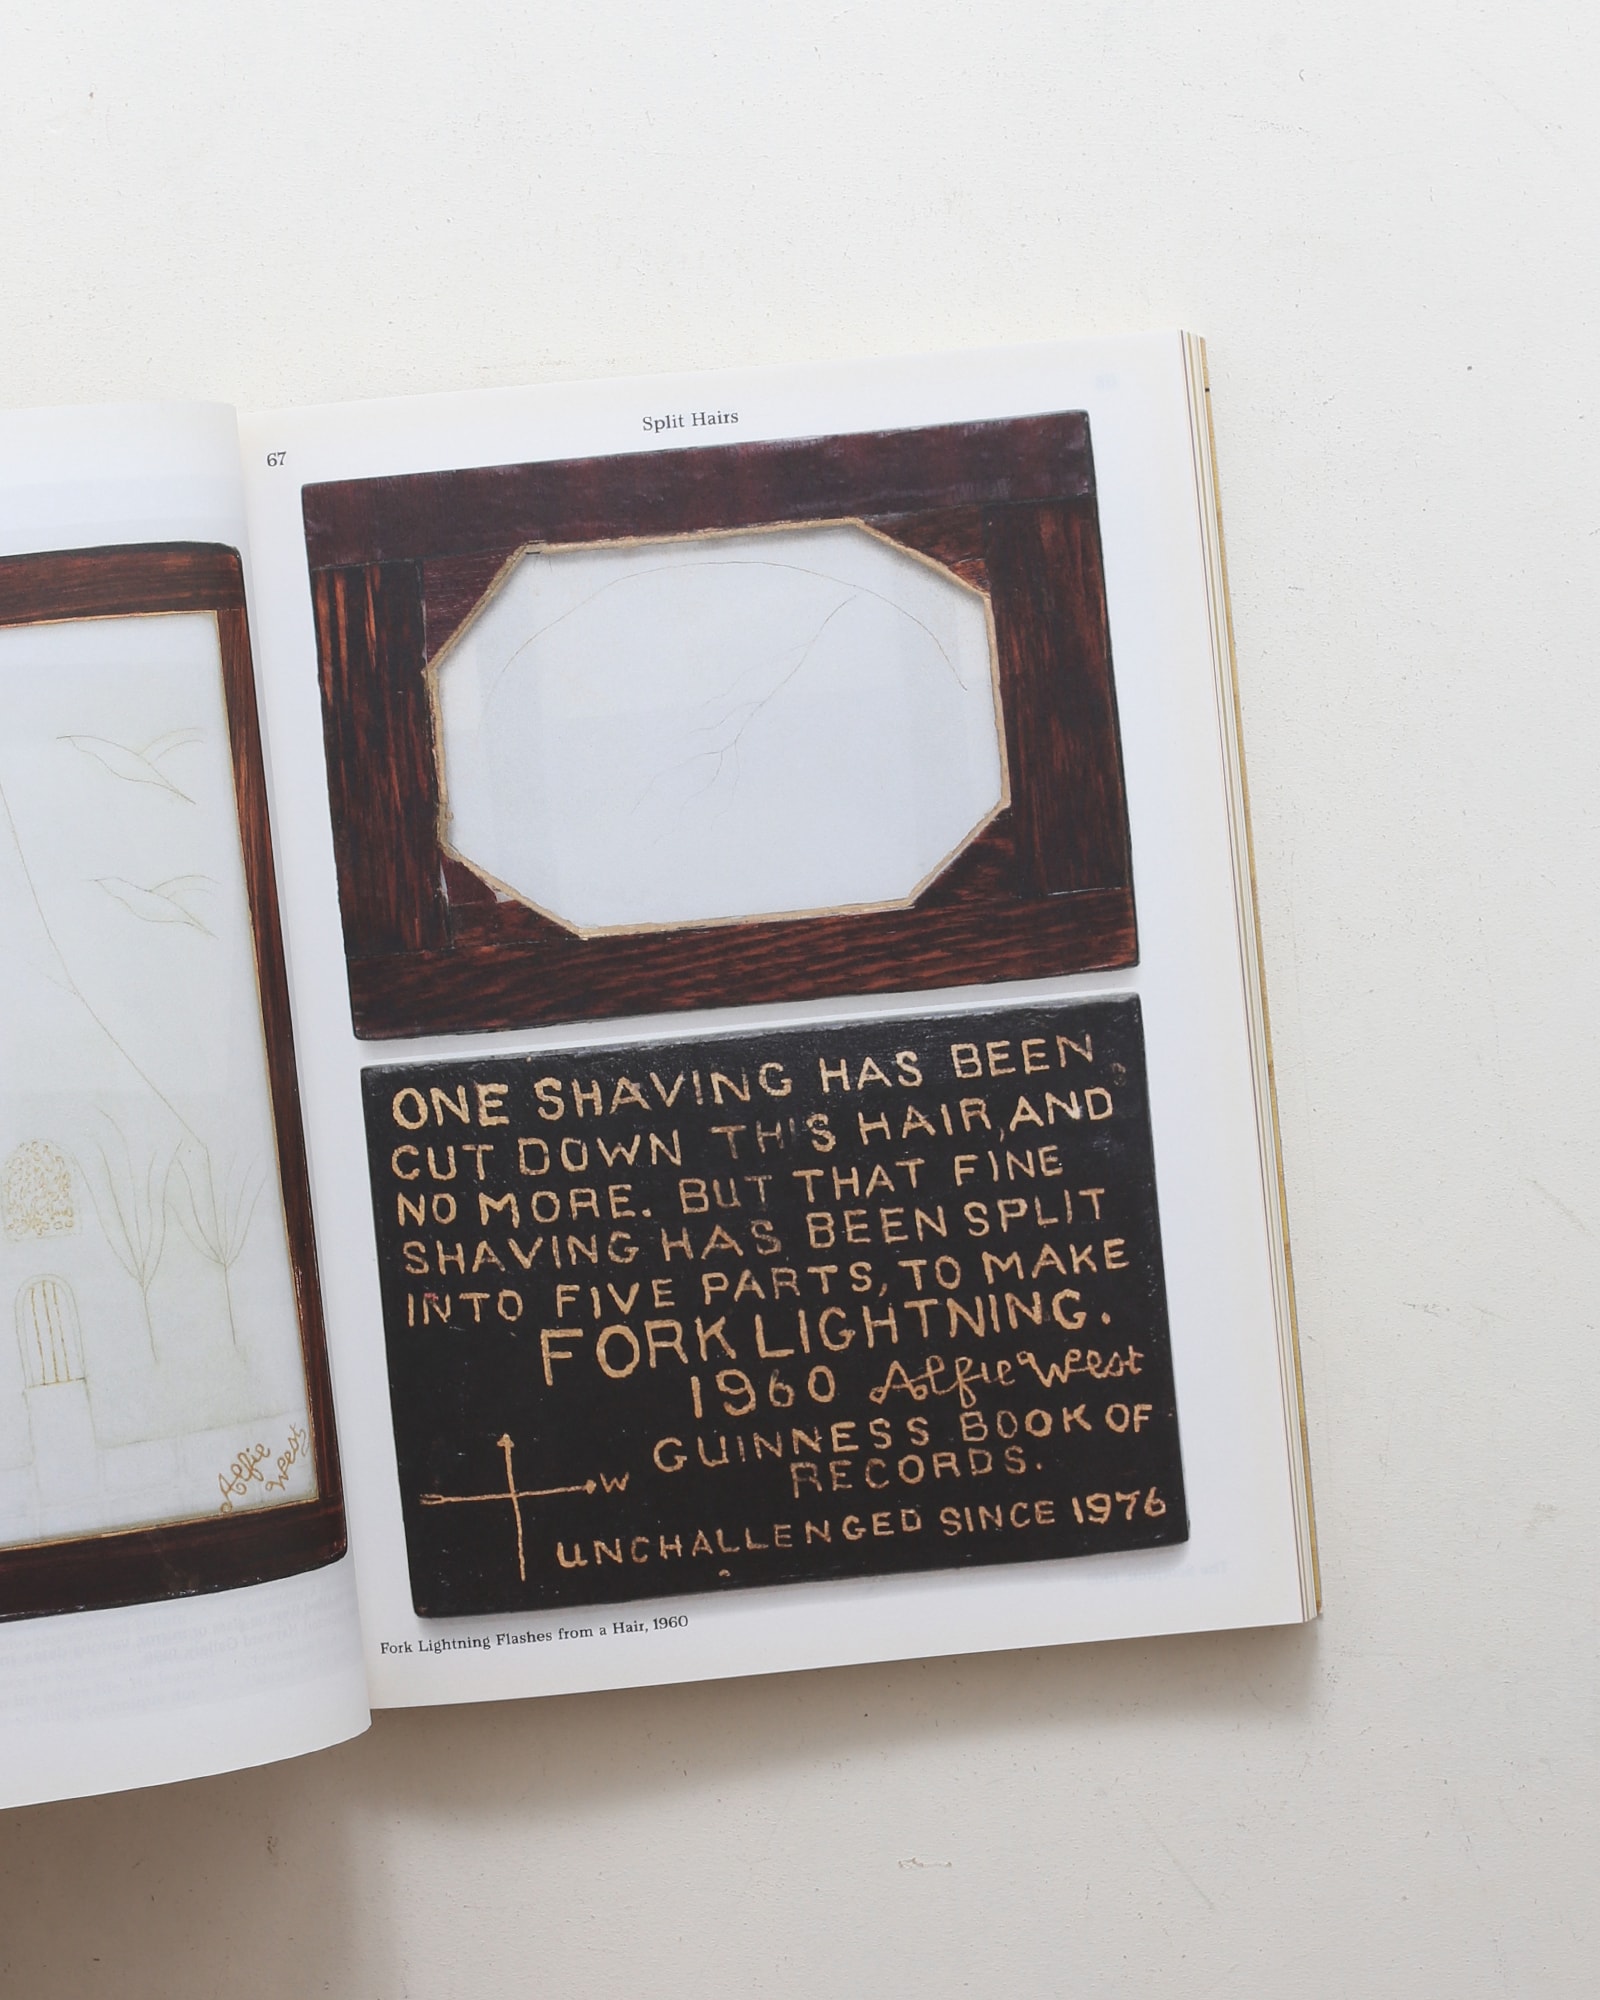 67
Split Hairs
Alfie
West
ONE SHAVING HAS BEEN
CUT DOWN THIS HAIR, AND
NO MORE. BUT THAT FINE
SHAVING HAS BEEN SPLIT
INTO FIVE PARTS, TO MAKE
FORK LIGHTNING.
1960 Alfie West
GUINNESS BOOK OF
RECORDS.
W
UNCHALLENGED SINCE 1976
Fork Lightning Flashes from a Hair, 1960